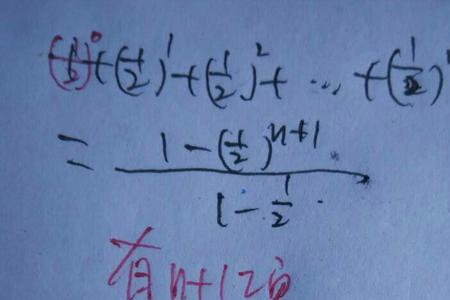 (1/2)^0 + (1/2)^1 + (1/2)^2 + ... + (1/2)
= (1 - (1/2)^{n+1}) / (1 - 1/2)
有n+1项